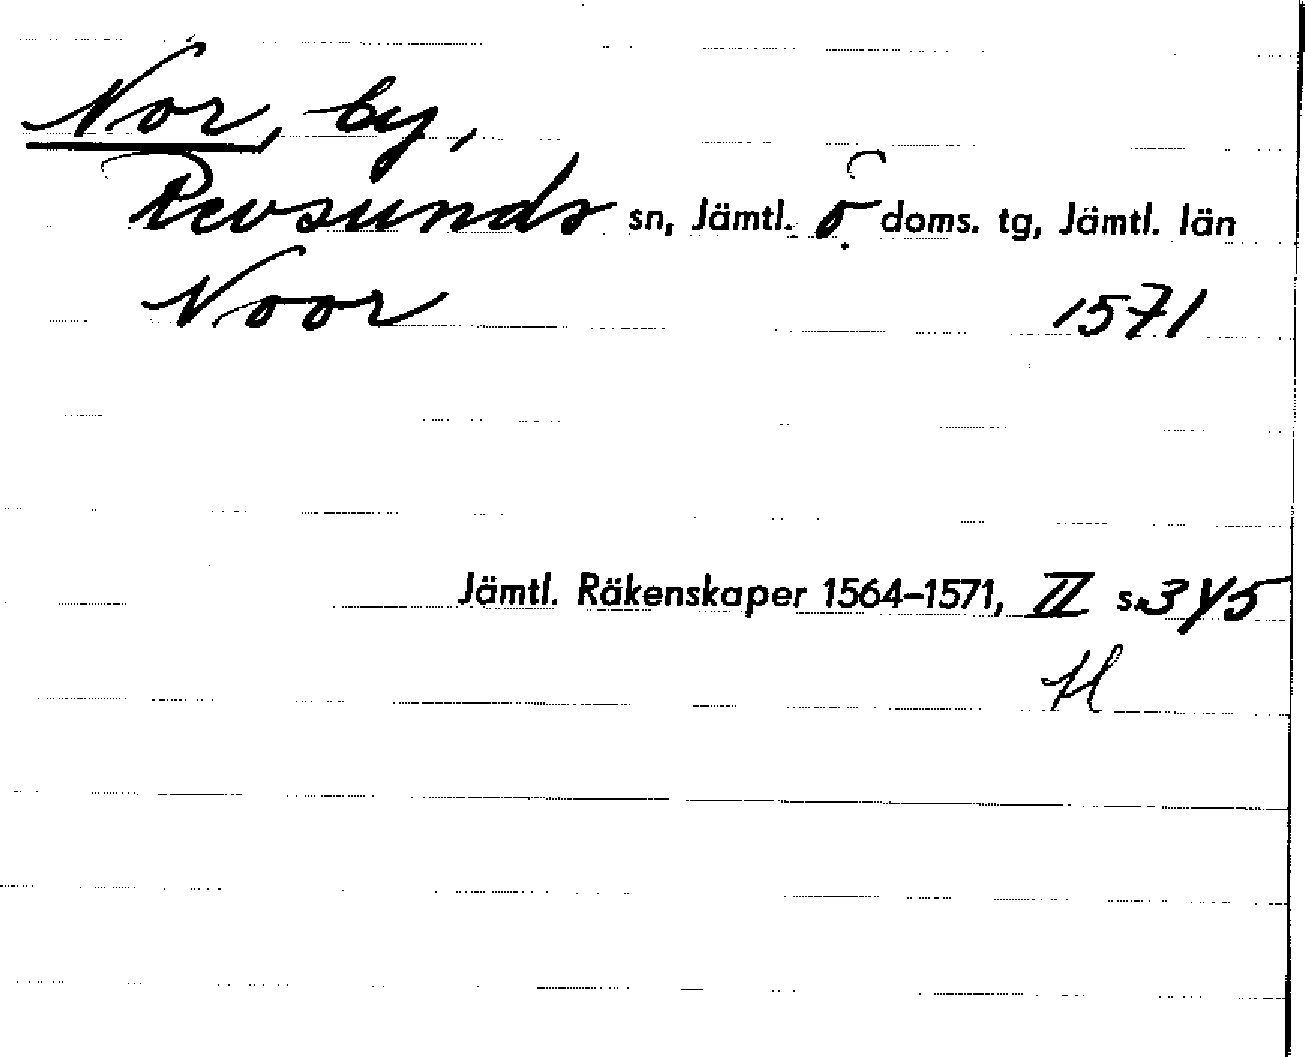 Nor, by,
Revsunds sn, Jämtl. ö doms. tg, Jämtl. län
Noor 1571
Jämtl. Räkenskaper 1564–1571, II s. 345
H